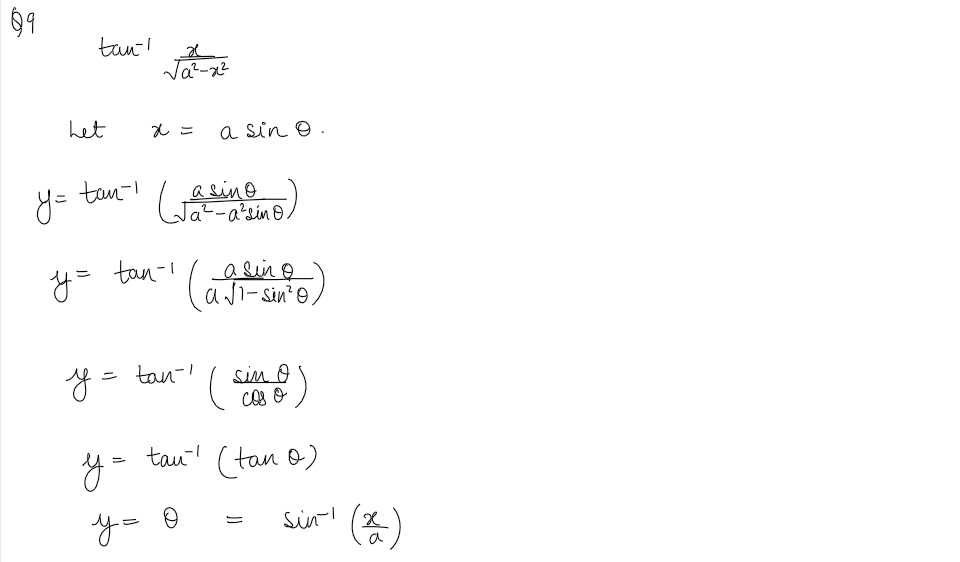 Q9
tan⁻¹ x/√(a²-x²)
Let x = a sin θ.
y = tan⁻¹ (a sin θ/√(a²-a²sin θ))
y = tan⁻¹ (a sin θ/a√(1-sin²θ))
y = tan⁻¹ (sin θ/cos θ)
y = tan⁻¹ (tan θ)
y = θ = sin⁻¹ (x/a)